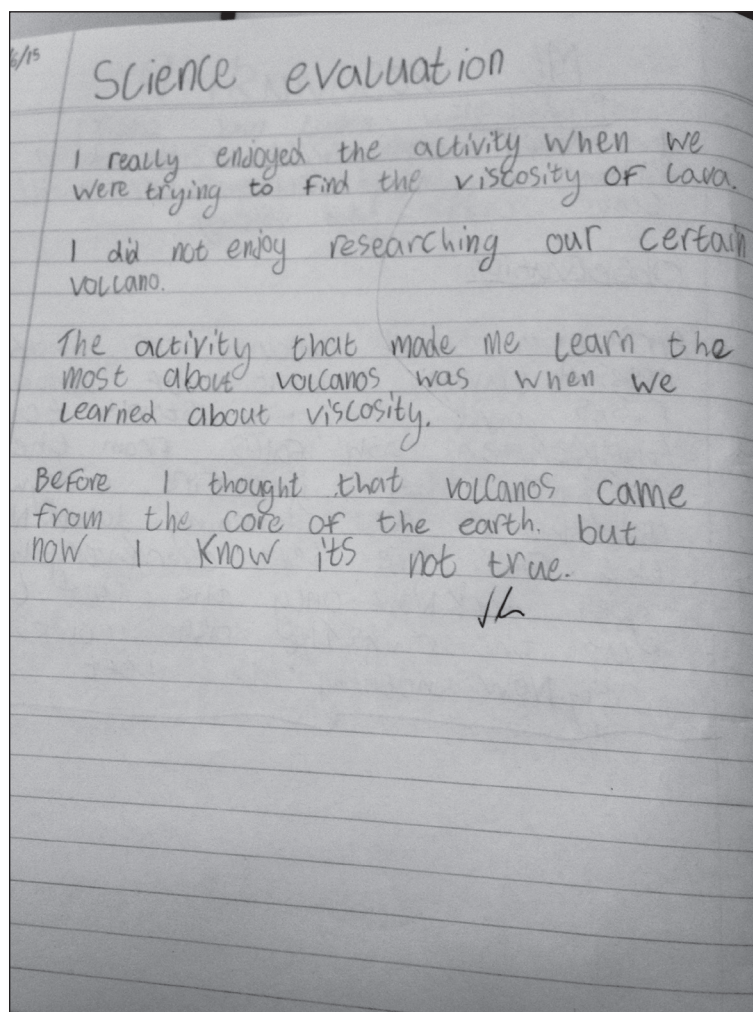 6/15
Science evaluation
I really enjoyed the activity when we
were trying to find the viscosity of lava.
I did not enjoy researching our certain
volcano.
The activity that made me learn the
most about volcanos was when we
learned about viscosity.
Before I thought that volcanos came
from the core of the earth. but
now I know its not true.